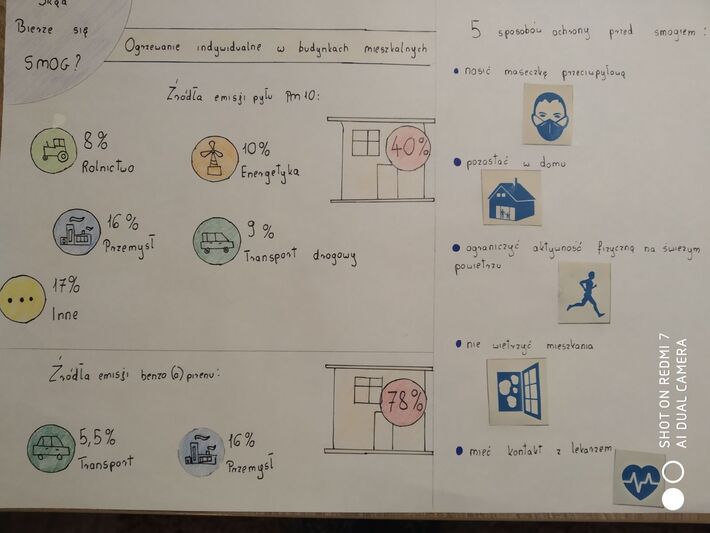 Skąd
Bierze się
SMOG?
Ogrzewanie indywidualne w budynkach mieszkalnych
Źródła emisji pyłu PM 10:
8%
Rolnictwo
10%
Energetyka
40%
16%
Przemysł
9%
Transport drogowy
17%
Inne
Źródła emisji benzo(a)pirenu:
78%
5,5%
Transport
16%
Przemysł
5 sposobów ochrony przed smogiem:
• nosić maseczkę przeciwpyłową
• pozostać w domu
• ograniczyć aktywność fizyczną na świeżym
powietrzu
• nie wietrzyć mieszkania
• mieć kontakt z lekarzem
SHOT ON REDMI 7
AI DUAL CAMERA